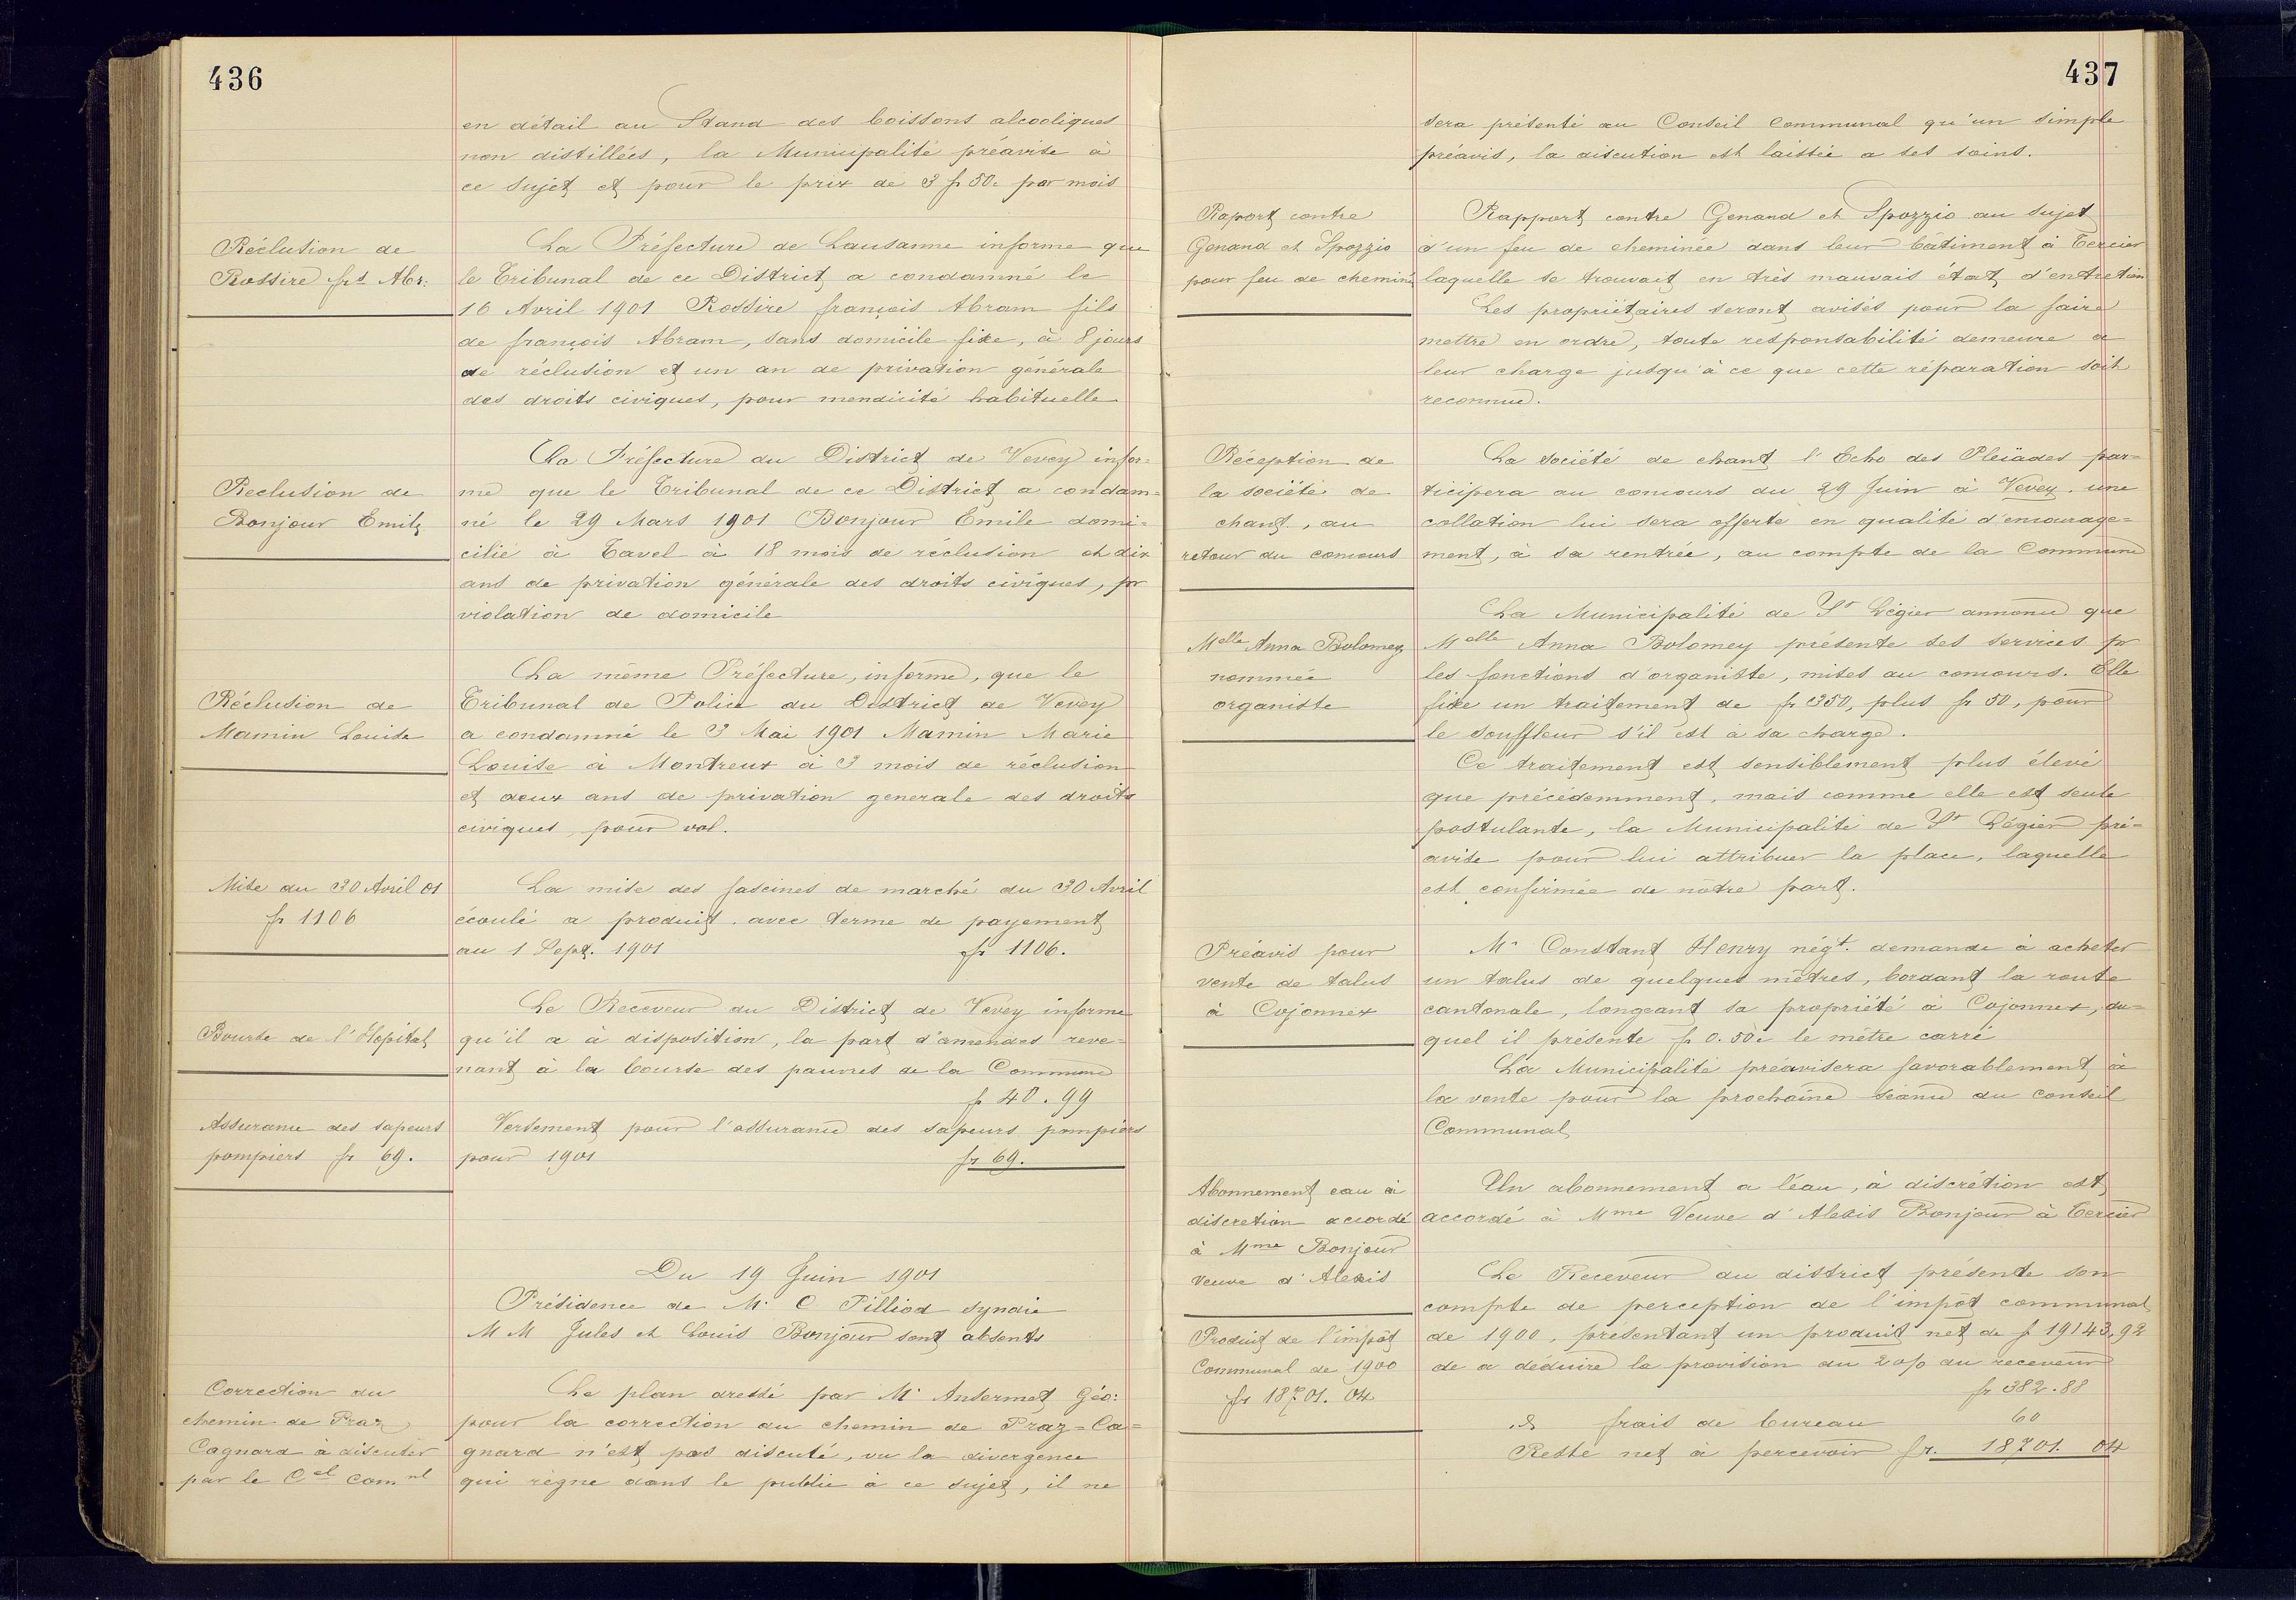 436
en détail au Stand des boissons alcooliques
non distillées, la Municipalité préavise à
ce sujet et pour le prix de 3 fr 50. par mois
Réclusion de
Rossire frs Abr:
La Préfecture de Lausanne informe que
le Tribunal de ce District a condamné le
16 Avril 1901 Rossire françois Abram fils
de françois Abram, sans domicile fixe, à 8 jours
de réclusion et un an de privation générale
des droits civiques, pour mendicité habituelle
Reclusion de
Bonjour Emile
La Préfecture du District de Vevey infor=
me que le Tribunal de ce District a condam=
né le 29 Mars 1901 Bonjour Emile domi=
cilié à Tavel à 18 mois de réclusion et dix
ans de privation générale des droits civiques, pr
violation de domicile
Réclusion de
Mamin Louise
La même Préfecture, informe, que le
Tribunal de Police du District de Vevey
a condamné le 3 Mai 1901 Mamin Marie
Louise à Montreux à 3 mois de réclusion
et deux ans de privation generale des droits
civiques, pour vol.
Mise du 30 Avril 01
fr 1106
La mise des fascines de marché du 30 Avril
écoulé a produit. avec terme de payement
au 1 Sept. 1901 fr 1106.
Bourse de l'Hopital
Le Receveur du District de Vevey informe
qu'il a à disposition, la part d'amendes reve=
nant à la bourse des pauvres de la Commune
fr 40.99
Assurance des sapeurs
pompiers fr 69.
Versement pour l'assurance des sapeurs pompiers
pour 1901 fr 69.
Du 19 Juin 1901
Présidence de Mr C Pilliod syndic
M M Jules et Louis Bonjour sont absents
Correction du
chemin de Praz
Cagnard à discuter
par le Cel Comnl
Le plan dressé par Mr Ansermet Géo:
pour la correction du chemin de Praz=Ca=
gnard n'est pas discuté, vu la divergence
qui règne dans le public à ce sujet, il ne
437
sera présenté au Conseil Communal qu'un simple
préavis, la discution est laissée a ses soins.
Raport contre
Genand et Spozzio
pour feu de cheminé
Rapport contre Genand et Spozzio au sujet
d'un feu de cheminée dans leur bâtiment à Tercier
laquelle se trouvait en très mauvais état d'entretien
Les propriétaires seront avisés pour la faire
mettre en ordre, toute responsabilité demeure a
leur charge jusqu'à ce que cette réparation soit
reconnue.
Réception de
la société de
chant, au
retour du concours
La société de chant l'Echo des Pleïades par=
ticipera au concours du 29 Juin à Vevey. une
collation lui sera offerte en qualité d'encourage=
ment, à sa rentrée, au compte de la Commune
Melle Anna Bolomey
nommée
organiste
La Municipalité de St Légier annonce que
Melle Anna Bolomey présente ses services pr
les fonctions d'organiste, mises au concours. Elle
fixe un traitement de fr 350, plus fr 50, pour
le souffleur s'il est à sa charge.
Ce traitement est sensiblement plus élevé
que précédemment, mais comme elle est seule
postulante, la Municipalité de St Légier pré=
avise pour lui attribuer la place, laquelle
est confirmée de nôtre part.
Préavis pour
vente de talus
à Cojonnex
Mr Constant Henry négt. demande à acheter
un talus de quelques mètres, bordant la route
cantonale, longeant sa propriété à Cojonnex, du=
quel il présente fr 0.50c le mètre carré
La Municipalité préavisera favorablement à
la vente pour la prochaine séance du conseil
Communal
Abonnement eau à
discretion accordé
à Mme Bonjour
veuve d'Alexis
Un abonnement a l'eau, à discrétion est
accordé à Mme Veuve d'Alexis Bonjour à Tercier
Produit de l'impôt
Communal de 1900
fr 18701.04
Le Receveur du district présente son
compte de perception de l'impôt communal
de 1900, présentant un produit net de fr 19143,92
de a déduire la provision du 2 o/o du receveur
fr 382.88
frais de bureau 60
Reste net à percevoir fr. 18701.04